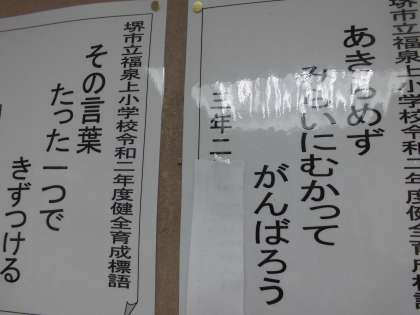 堺市立福泉上小学校令和二年度健全育成標語
あきらめず
みらいにむかって
がんばろう
三年二
堺市立福泉上小学校令和二年度健全育成標語
その言葉
たった一つで
きずつける